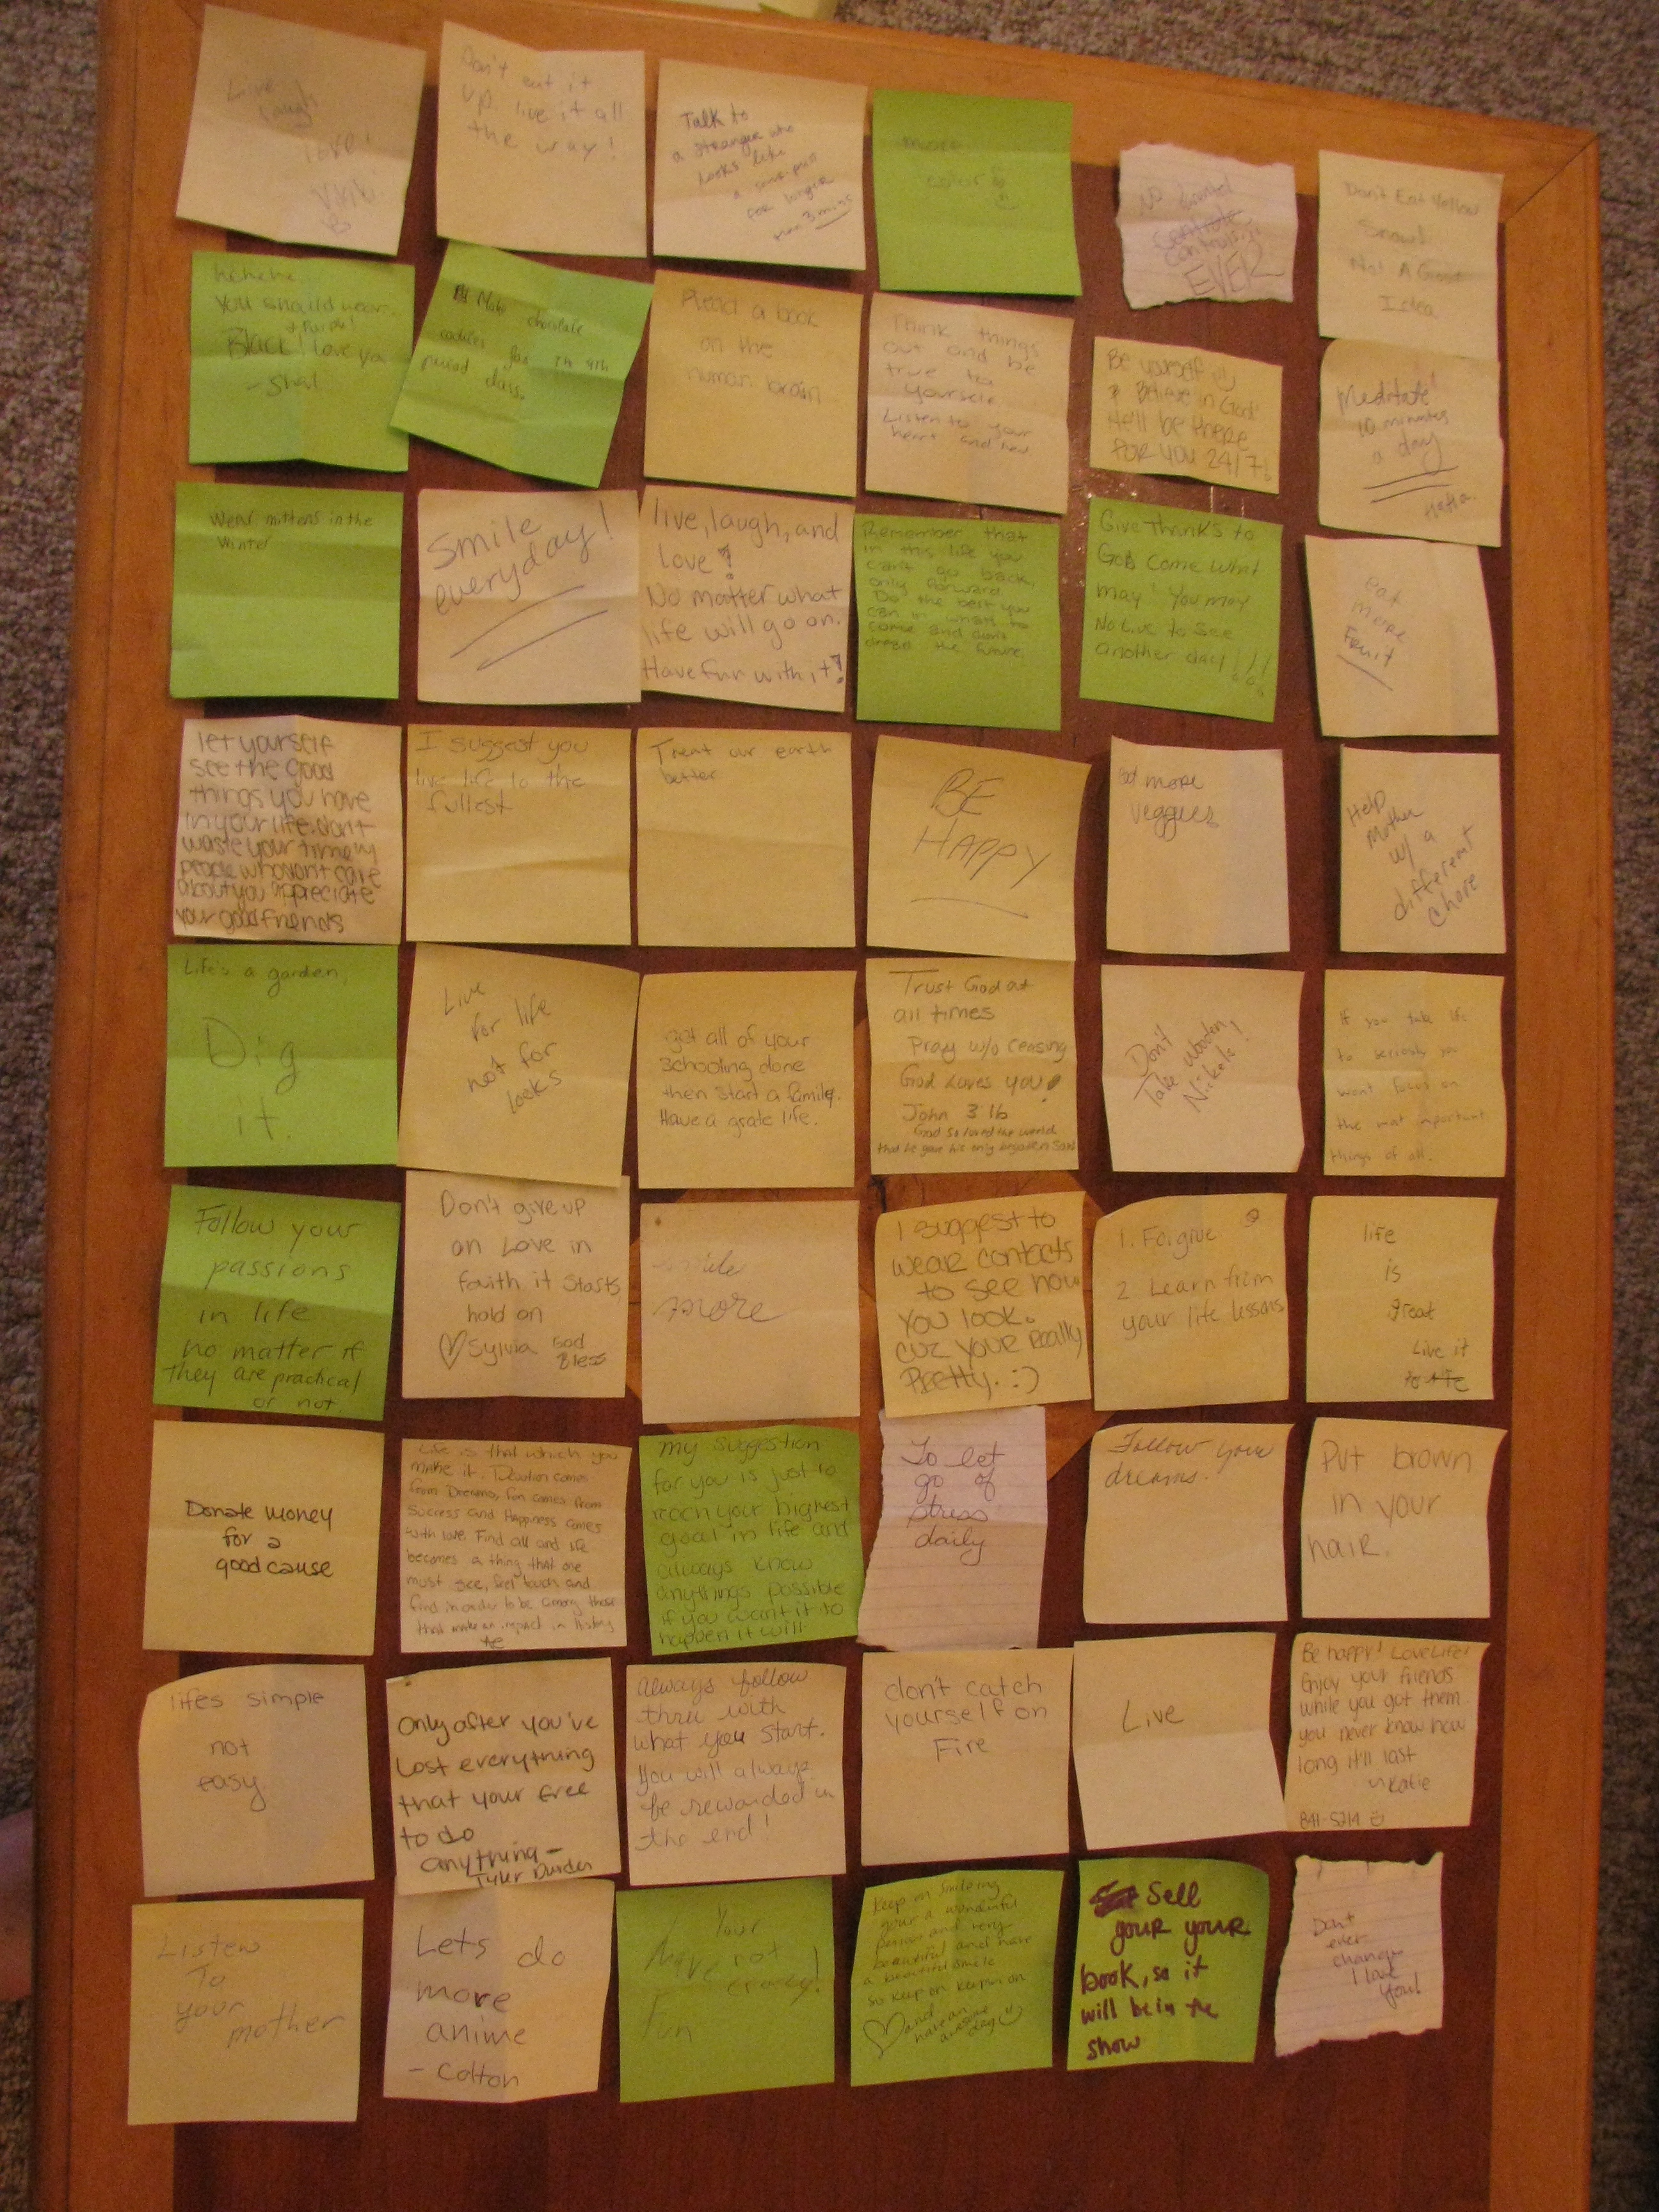 Live
laugh
love!
Don't eat it
up live it all
the way!
Talk to
a stranger who
looks like
a
for longer
than 3 mins
more
color
No
controlling
EVER
Don't Eat Yellow
Snow!
Not A Good
Idea
hehehe
you should wear
+ Purple!
Black! I love you
- Shal
Make chocolate
cookies for 4th
period class.
Read a book
on the
human brain
Think things
out and be
true to
yourself.
Listen to your
heart and
Be yourself
& Believe in God!
He'll be there
FOR YOU 24/7!
Meditate!
10 minutes
a day
Wear mittens in the
Winter
Smile
everyday!
live, laugh, and
love!
No matter what
life will go on.
Have fun with it!
Remember that
in this life you
can't go back,
only forward.
Do the best you
can in whats to
come and don't
dread the future.
Give Thanks to
God come what
may! You may
Not Live to See
another day!!!
eat
more
Fruit
let yourself
see the good
things you have
in your life. don't
waste your time w/
people who don't care
about you appreciate
your good friends
I suggest you
live life to the
fullest
Treat our earth
better
BE
HAPPY
Eat more
veggies
Help
Mother
w/ a
different
chore
Life's a garden,
Dig
it.
Live
for life
not for
looks
get all of your
schooling done
then start a family.
Have a grate life.
Trust God at
all times
Pray w/o ceasing
God Loves you!
John 3 16
God so loved the world
that he gave his only begotten son
Don't
Take Wooden
Nickels!
If you take life
to seriously you
wont focus on
the most important
things of all.
Follow your
passions
in life
no matter if
they are practical
or not.
Don't give up
on Love in
faith it starts,
hold on
♡ Sylvia God
Bless
smile
more
I suggest to
wear contacts
to see how
you look.
cuz your Really
Pretty. :)
1. Forgive
2 Learn from
your life lessons
life
is
great
Live it
Donate money
for a
good cause
Life is that which you
make it. Devotion comes
from Dreams, fun comes from
success and Happiness comes
with love. Find all and life
becomes a thing that one
must see, feel touch and
find in order to be among those
that make an impact in history
my suggestion
for you is just to
reach your highest
goal in life and
always know
anythings possible
if you want it to
happen it will.
To let
go of
stress
daily
Follow your
dreams.
Put brown
in your
hair.
lifes simple
not
easy
Only after you've
Lost everything
that your free
to do
anything -
Tyler Durden
Always follow
thru with
what you start.
You will always
be rewarded in
the end!
don't catch
yourself on
Fire
Live
Be happy! Love Life!
Enjoy your friends
while you got them
you never know how
long it'll last
~Katie
841-5214
Listen
To
your
mother
Lets do
more
anime
- Colton
Your
Have not
crazy!
Fun
Keep on Smileing
your a wonderful
person and very
beautiful and have
a beautiful smile
so keep on keepin on
♡ and
have an
awesome
day
Sell
your your
book, so it
will be in the
show
Don't
ever
change
I love
you!